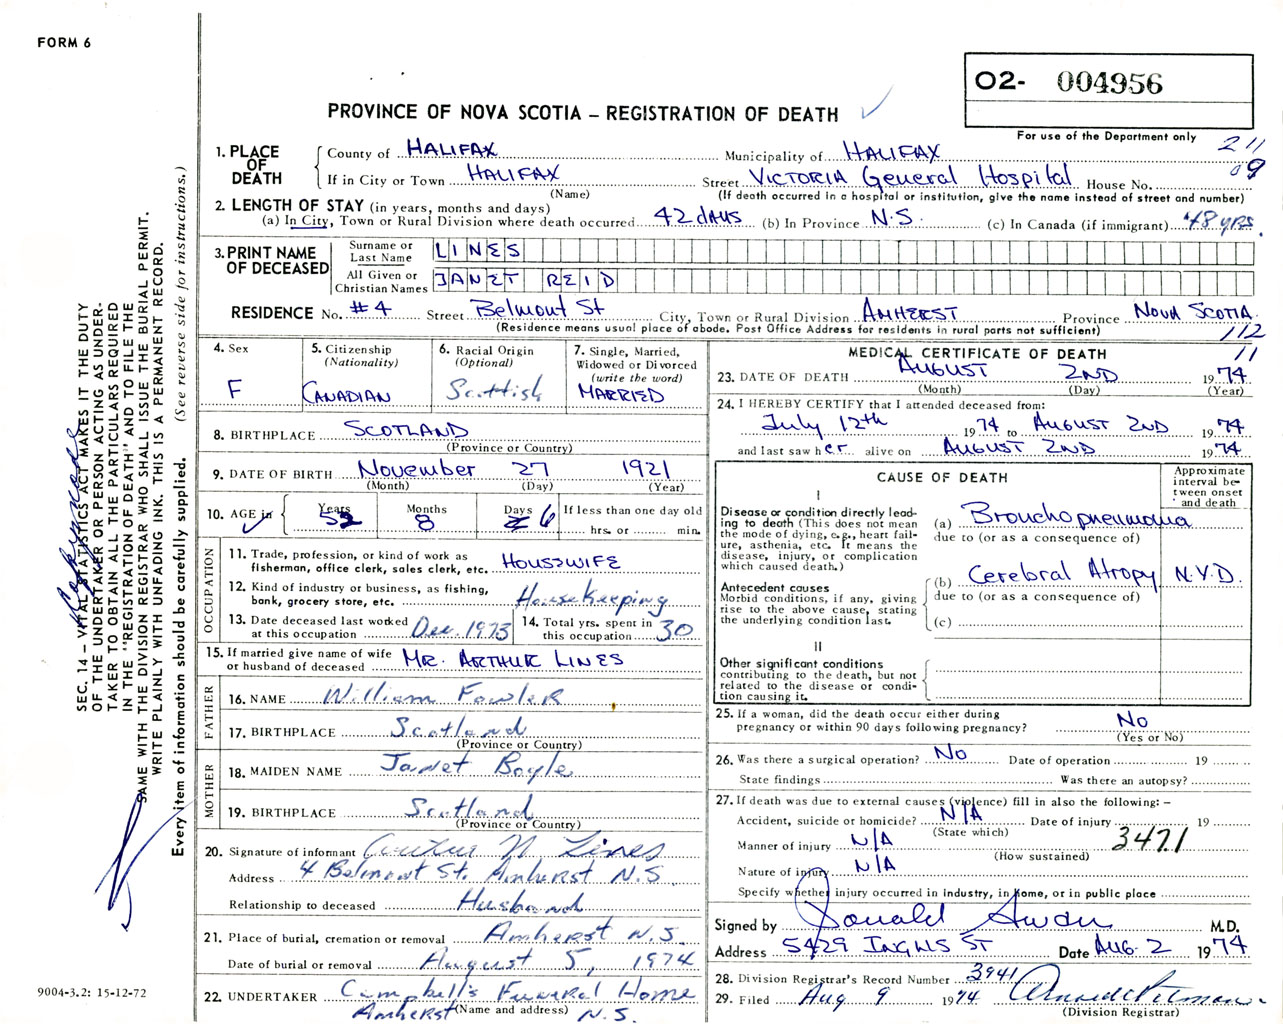 FORM 6
O2- 004956
PROVINCE OF NOVA SCOTIA – REGISTRATION OF DEATH
For use of the Department only
211
09
1. PLACE OF DEATH
County of HALIFAX Municipality of HALIFAX
If in City or Town HALIFAX Street VICTORIA General Hospital House No.
(Name) (If death occurred in a hospital or institution, give the name instead of street and number)
2. LENGTH OF STAY (in years, months and days)
(a) In City, Town or Rural Division where death occurred 42 days (b) In Province N.S. (c) In Canada (if immigrant) 48 yrs.
3. PRINT NAME OF DECEASED
Surname or Last Name LINES
All Given or Christian Names JANET REID
RESIDENCE No. #4 Street Belmont St City, Town or Rural Division AMHERST Province NOVA SCOTIA
(Residence means usual place of abode. Post Office Address for residents in rural parts not sufficient)
112
11
4. Sex F
5. Citizenship (Nationality) CANADIAN
6. Racial Origin (Optional) Scottish
7. Single, Married, Widowed or Divorced (write the word) MARRIED
8. BIRTHPLACE SCOTLAND
(Province or Country)
9. DATE OF BIRTH November 27 1921
(Month) (Day) (Year)
10. AGE in Years 52 Months 8 Days 6 If less than one day old
hrs. or min.
OCCUPATION
11. Trade, profession, or kind of work as fisherman, office clerk, sales clerk, etc. HOUSEWIFE
12. Kind of industry or business, as fishing, bank, grocery store, etc. Housekeeping
13. Date deceased last worked at this occupation Dec. 1973
14. Total yrs. spent in this occupation 30
15. If married give name of wife or husband of deceased MR. ARTHUR LINES
FATHER
16. NAME William Fowler
17. BIRTHPLACE Scotland
(Province or Country)
MOTHER
18. MAIDEN NAME Janet Boyle
19. BIRTHPLACE Scotland
(Province or Country)
20. Signature of informant Arthur N Lines
Address 4 Belmont St. Amherst N.S.
Relationship to deceased Husband
21. Place of burial, cremation or removal Amherst N.S.
Date of burial or removal August 5, 1974
22. UNDERTAKER Campbell's Funeral Home
(Name and address) Amherst N.S.
MEDICAL CERTIFICATE OF DEATH
23. DATE OF DEATH AUGUST 2ND 1974
(Month) (Day) (Year)
24. I HEREBY CERTIFY that I attended deceased from:
July 12th 1974 to AUGUST 2ND 1974
and last saw her alive on AUGUST 2ND 1974
CAUSE OF DEATH
Approximate interval between onset and death
I
Disease or condition directly leading to death (This does not mean the mode of dying, e.g., heart failure, asthenia, etc. It means the disease, injury, or complication which caused death.)
(a) Bronchopneumonia
due to (or as a consequence of)
Antecedent causes
Morbid conditions, if any, giving rise to the above cause, stating the underlying condition last.
(b) Cerebral Atropy N.Y.D.
due to (or as a consequence of)
(c)
II
Other significant conditions contributing to the death, but not related to the disease or condition causing it.
25. If a woman, did the death occur either during pregnancy or within 90 days following pregnancy? No
(Yes or No)
26. Was there a surgical operation? No Date of operation 19
State findings Was there an autopsy?
27. If death was due to external causes (violence) fill in also the following: –
Accident, suicide or homicide? N/A Date of injury 19
(State which)
Manner of injury N/A
(How sustained)
3471
Nature of injury N/A
Specify whether injury occurred in industry, in home, or in public place
Signed by Donald M.D.
Address 5429 INGLIS ST Date AUG. 2 1974
28. Division Registrar's Record Number 3941
29. Filed Aug 9 1974
(Division Registrar)
SEC. 14 – VITAL STATISTICS ACT MAKES IT THE DUTY
OF THE UNDERTAKER OR PERSON ACTING AS UNDER-
TAKER TO OBTAIN ALL THE PARTICULARS REQUIRED
IN THE "REGISTRATION OF DEATH" AND TO FILE THE
SAME WITH THE DIVISION REGISTRAR WHO SHALL ISSUE THE BURIAL PERMIT.
WRITE PLAINLY WITH UNFADING INK. THIS IS A PERMANENT RECORD.
Every item of information should be carefully supplied. (See reverse side for instructions.)
9004-3.2: 15-12-72